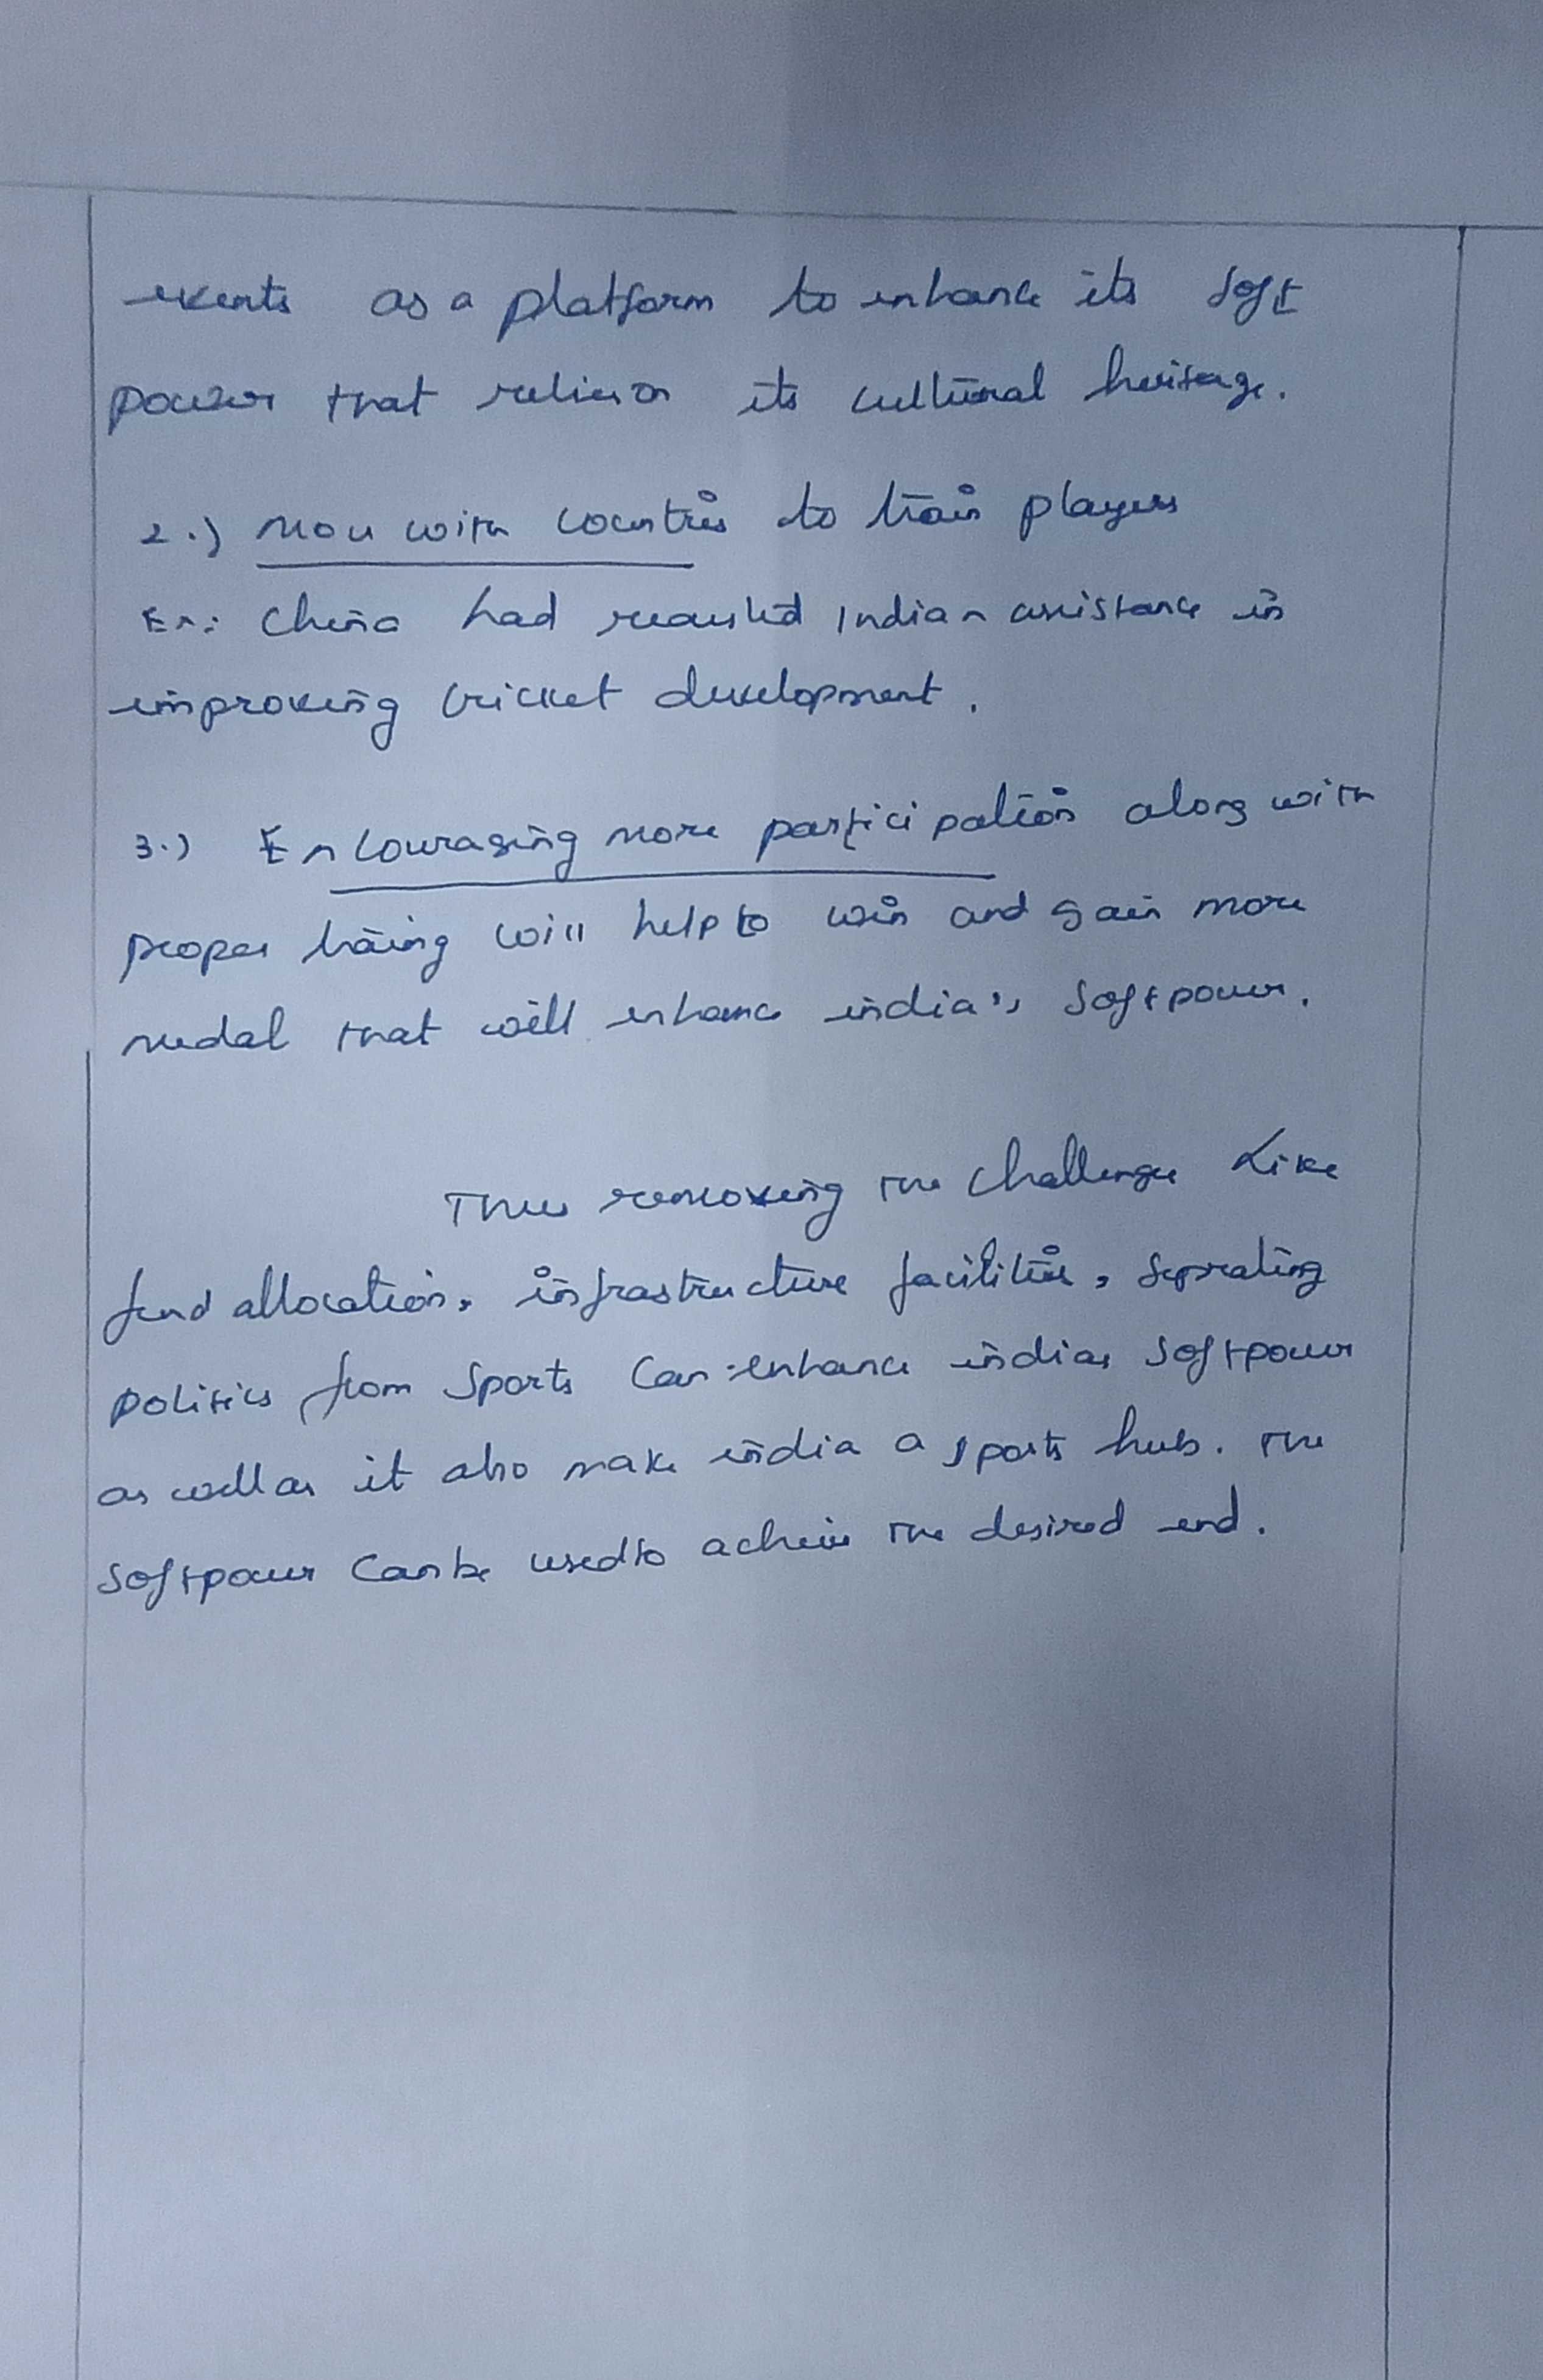 events as a platform to enhance its soft
power that relies on its cultural heritage.
2.) Mou with countries to train players
Ex: China had requested Indian assistance in
improving cricket development.
3.) Encouraging more participation along with
proper traing will help to win and gain more
medal that will enhance india's softpower.
Thus removing the challenges like
fund allocation, infrastructure facilities, seprating
politics from sports can enhance indias softpower
as well as it also make india a sports hub. The
softpower can be used to acheive the desired end.